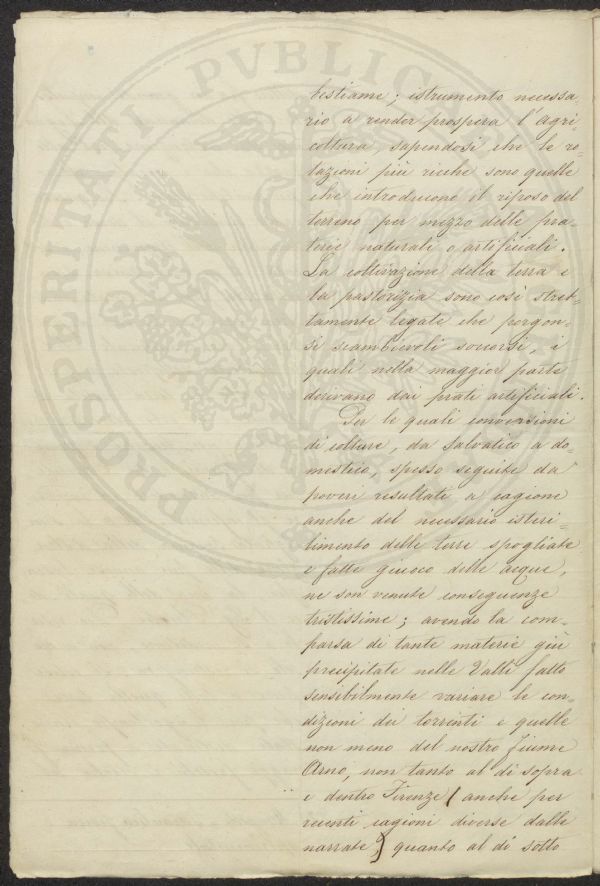 bestiame; istrumento necessa-
rio a render prospera l'agri-
coltura, sapendosi che le ro-
tazioni più ricche sono quelle
che introducono il riposo del
terreno per mezzo delle pra-
terie naturali o artificiali.
La coltivazione della terra e
la pastorizia sono così stret-
tamente legate che porgon-
si scambievoli soccorsi, i
quali nella maggior parte
derivano dai prati artificiali.
Per le quali conversioni
di colture, da salvatico a do-
mestico, spesso seguite da
poveri resultati a cagione
anche del necessario isteri-
limento delle terre spogliate
e fatte giuoco delle acque,
ne son venute conseguenze
tristissime; avendo la com-
parsa di tante materie giù
precipitate nelle Valli fatto
sensibilmente variare le con-
dizioni dei torrenti e quelle
non meno del nostro fiume
Arno, non tanto al di sopra
e dentro Firenze (anche per
recenti cagioni diverse dalle
narrate,) quanto al di sotto
PROSPERITATI PVBLIC